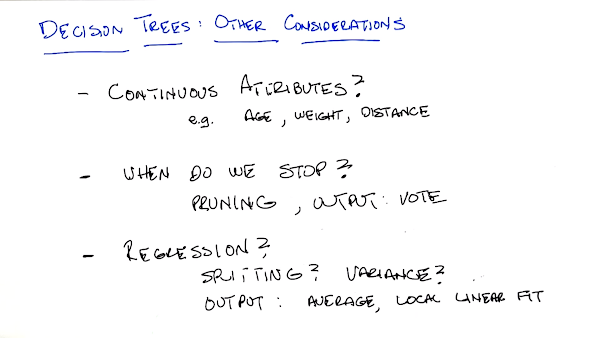 DECISION TREES: OTHER CONSIDERATIONS
- CONTINUOUS ATTRIBUTES?
e.g. AGE, WEIGHT, DISTANCE
- WHEN DO WE STOP?
PRUNING, OUTPUT: VOTE
- REGRESSION?
SPLITTING? VARIANCE?
OUTPUT: AVERAGE, LOCAL LINEAR FIT